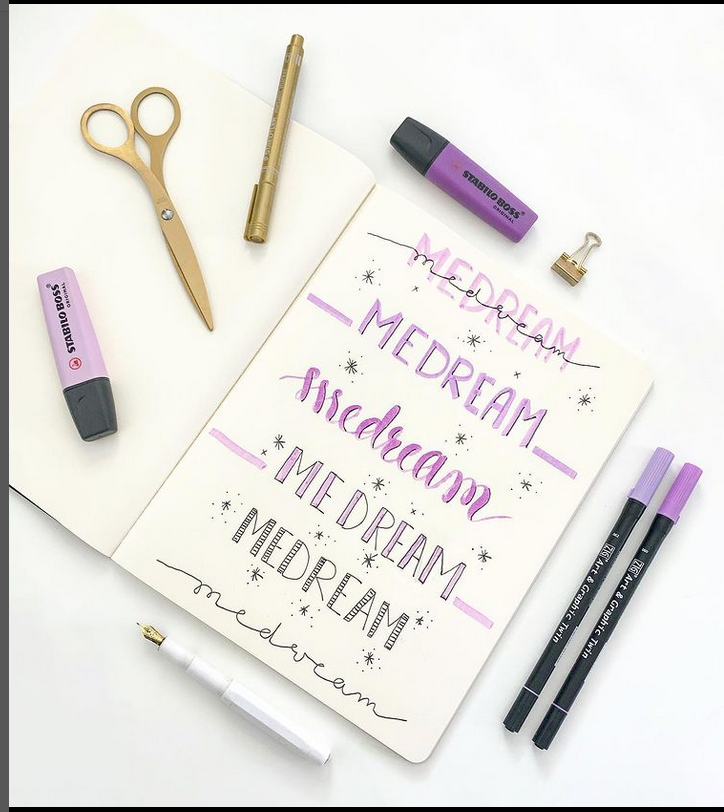 STABILO BOSS
ORIGINAL
STABILO BOSS
ORIGINAL
MEDREAM
medream
MEDREAM
medream
MEDREAM
MEDREAM
medream
ZIG Art & Graphic Twin
ZIG Art & Graphic Twin